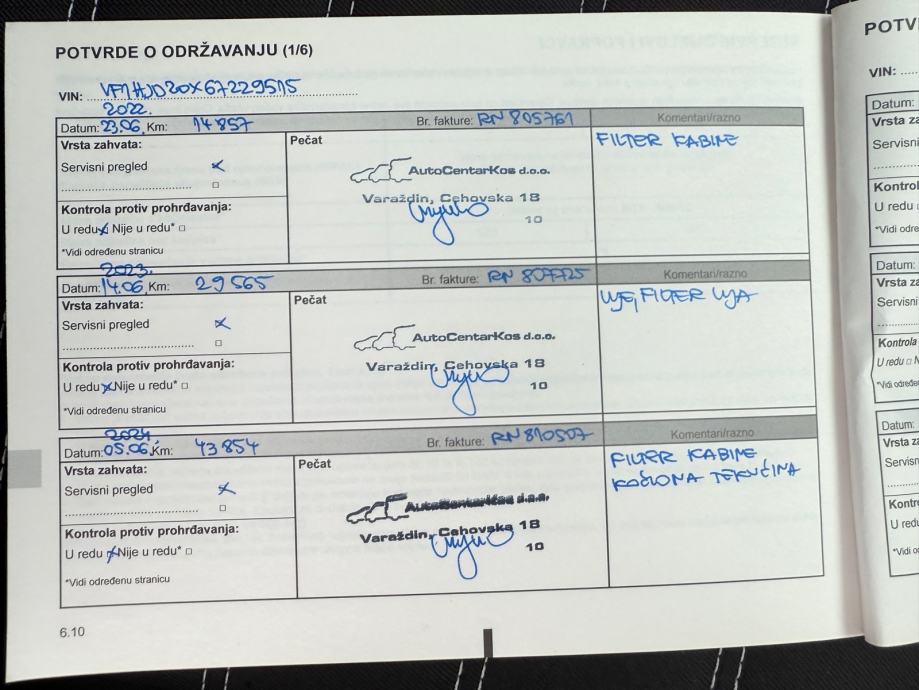 POTVRDE O ODRŽAVANJU (1/6)
VIN: VF1HJD20X67229515
2022.
Datum: 23.06. Km: 14857 Br. fakture: RN 805761 Komentari/razno
Vrsta zahvata: Pečat FILTER KABINE
Servisni pregled x
AutoCentarKos d.o.o.
Varaždin, Cehovska 18
10
Kontrola protiv prohrđavanja:
U redu x Nije u redu* □
*Vidi određenu stranicu
2023.
Datum: 14.06. Km: 29565 Br. fakture: RN 807725 Komentari/razno
Vrsta zahvata: Pečat ULJE, FILTER ULJA
Servisni pregled x
AutoCentarKos d.o.o.
Varaždin, Cehovska 18
10
Kontrola protiv prohrđavanja:
U redu x Nije u redu* □
*Vidi određenu stranicu
2024.
Datum: 05.06. Km: 43854 Br. fakture: RN 810507 Komentari/razno
Vrsta zahvata: Pečat FILTER KABINE
KOČIONA TEKUĆINA
Servisni pregled x
AutoCentarKos d.o.o.
Varaždin, Cehovska 18
10
Kontrola protiv prohrđavanja:
U redu x Nije u redu* □
*Vidi određenu stranicu
6.10
VIN:
Datum:
Datum:
Datum: